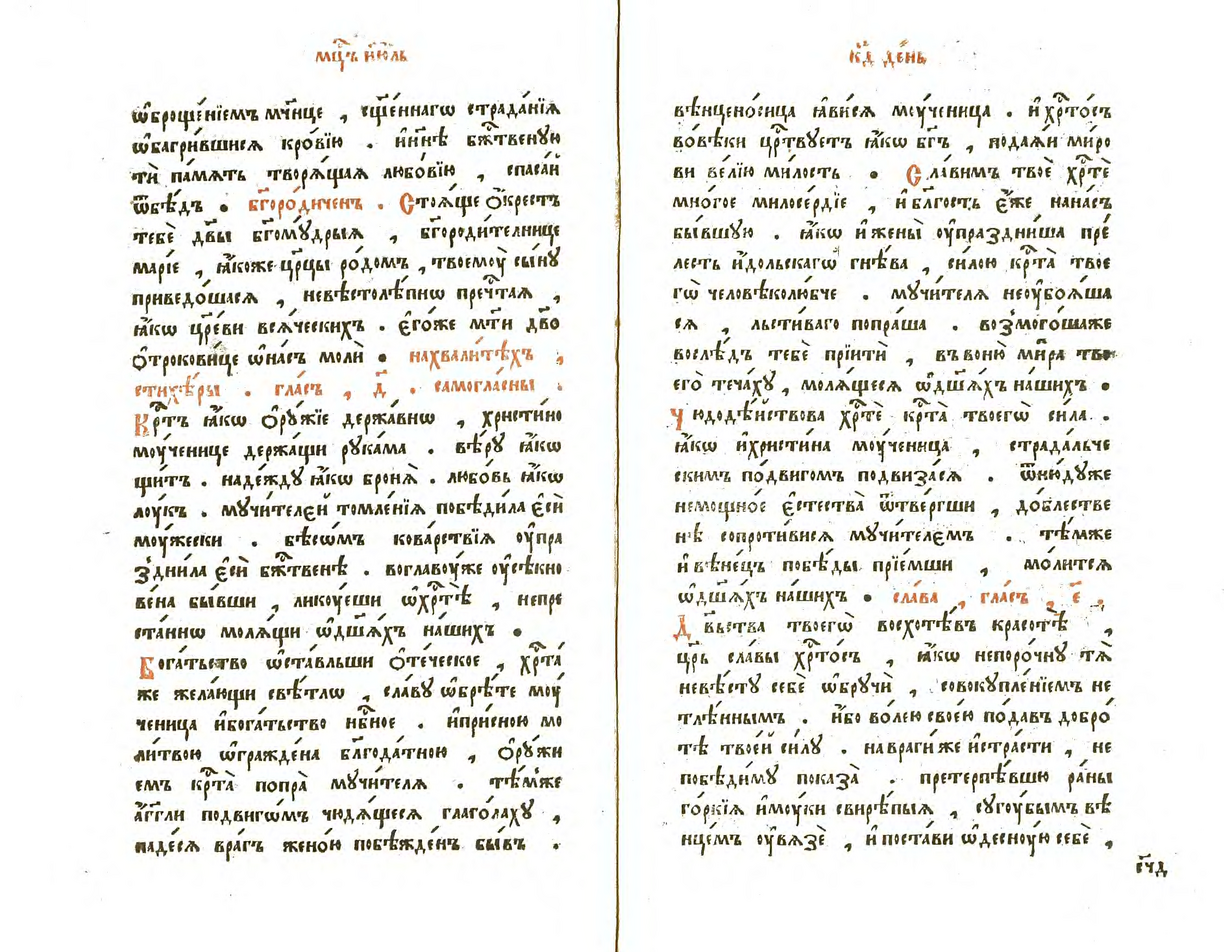 мц҃ъ і҆ю́ль
ѡ҆броще́нїемъ мч҃нце , сщ҃е́ннагѡ страда́нїѧ
ѡ҆багри́вшисѧ кро́вїю . и҆нн҃ѣ бж҃твеную
тѝ па́мѧть творѧ́щаѧ любо́вїю , спаса́й
ѿбѣ́дъ . бг҃оро́диченъ . Стоѧ́ще о҆́крестъ
тебѐ дв҃ы бг҃ому́дрыѧ , бг҃ороди́телнице
марі́е , ꙗ҆́коже цр҃цы ро́домъ , твоемоу̀ сы́нꙋ
приведо́шасѧ , невѣстолѣ́пнѡ преч҃таѧ ,
ꙗ҆́кѡ цр҃е́ви всѧ́ческихъ . є҆го́же мт҃и дв҃о
ѻ҆трокови́це ѡ҆на́съ молѝ . нахвали́тѣхъ ,
стихѣ́ры . гла́съ , д҃ . самогла́сны .
Крⷭ҇тъ ꙗ҆́кѡ ѻ҆рꙋ́жїе держа́внѡ , христи́но
моу́ченице держа́щи рꙋка́ма . вѣ́рꙋ ꙗ҆́кѡ
щи́тъ . наде́ждꙋ ꙗ҆́кѡ бронѧ̀ . любо́вь ꙗ҆́кѡ
лоу́къ . мꙋчи́телей томле́нїѧ побѣди́ла є҆сѝ
моу́жески . бѣсѡ́мъ кова́рствїѧ оу҆пра
здни́ла є҆сѝ бж҃твенѣ . воглавоу́же оу҆сѣкно
ве́на бы́вши , ликоу́еши ѡ҆хрⷭ҇тѣ̀ , непре
ста́ннѡ молѧ́щи ѡ҆дш҃а́хъ на́шихъ .
Бога́тьство ѡ҆ста́вльши ѻ҆те́ческое , хрⷭ҇та̀
же жела́ющи свѣ́тлѡ , сла́вꙋ ѡ҆брѣ́те моу́
ченица и҆бога́тьство нб҃ное . и҆при́сною мо
ли́твою ѡ҆гражде́на бл҃года́тною , ѻ҆рꙋ́жи
емъ крⷭ҇та̀ попра̀ мꙋчи́телѧ . тѣ́мже
а҆́гг҃ли по́двигѡмъ чюдѧ́щесѧ глаго́лахꙋ ,
паде́сѧ вра́гъ жено́ю побѣжде́нъ бы́въ .
к҃д де́нь
вѣнцено́сица ꙗ҆ви́сѧ моу́ченица . и҆ хрⷭ҇то́съ
во́вѣки црⷭ҇твуетъ ꙗ҆́кѡ бг҃ъ , пода́ѧи ми́ро
ви ве́лїю ми́лость . Сла́вимъ твоѐ хрⷭ҇тѐ
мно́гое милосе́рдїе , и҆ бл҃гость є҆́же нана́съ
бы́вшую . ꙗ҆́кѡ и҆ жены̀ оу҆праздни́ша пре́
лесть и҆́дольскагѡ гнѣ́ва , си́лою крⷭ҇та̀ твое
гѡ̀ человѣколю́бче . мꙋчи́телѧ неоу҆боѧ́ша
сѧ , льсти́ваго попра́ша . возмого́шаже
во́слѣдъ тебѐ прїитѝ , въвоню̀ мѵ́ра тво
его̀ теча́хꙋ , молѧ́щесѧ ѡ҆дш҃а́хъ на́шихъ .
Чюдодѣ́йствова хрⷭ҇тѐ крⷭ҇та̀ твоегѡ̀ си́ла .
ꙗ҆́кѡ и҆христи́на моу́ченица , страда́льче
скимъ по́двигомъ подвиза́сѧ . ѿню́дуже
немощно́е є҆стества̀ ѿтве́ргши , до́блестве
нѣ̀ сопроти́висѧ мꙋчи́телємъ . тѣ́мже
и҆ вѣне́цъ побѣ́ды прїе́мши , мо́литсѧ
ѡ҆дш҃а́хъ на́шихъ . сла́ва , гла́съ , є҃ .
Дв҃ьства твоегѡ̀ восхотѣ́въ красотѣ̀ ,
цр҃ь сла́вы хрⷭ҇то́съ , ꙗ҆́кѡ непоро́чнꙋ тѧ̀
невѣ́стꙋ себѐ ѡ҆брꙋчѝ , совокꙋпле́нїемъ не
тлѣ́ннымъ . и҆́бо во́лею свое́ю пода́въ добро́
тѣ твое́й си́лꙋ . навраги́же и҆стра́сти , не
побѣди́мꙋ показа̀ . претерпѣ́вшю ра́ны
го́ркїѧ и҆моу́ки свирѣ́пыѧ , сугоу́бымъ вѣ
нце́мъ оу҆вѧзѐ , и҆ поста́ви ѡ҆десноу́ю себѐ ,
є҆ч҃д